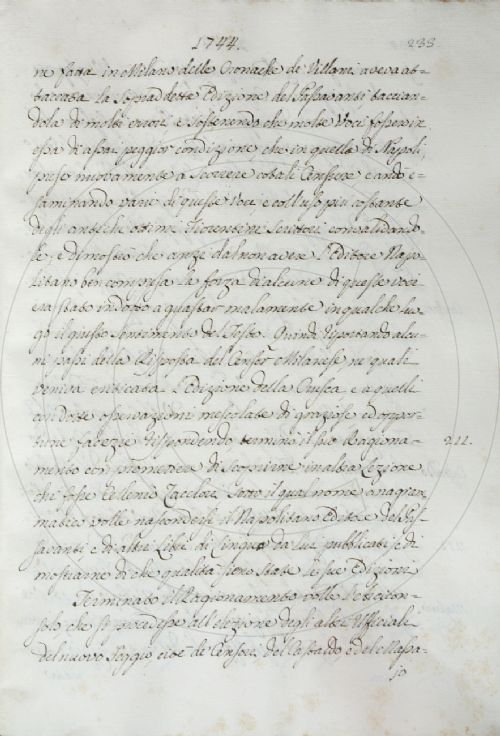 1744. 233
ne fatta in Milano delle Cronache di Villani aveva at-
taccata la sopradetta Edizione del Passavanti taccian-
dola di molti errori e sostenendo che molte Voci fossero in
essa di assai peggior condizione, che in quella di Napoli,
prese nuovamente a scorrere cotali Censure e ando e-
saminando varie di queste Voci e coll'uso più costante
degli antichi ottimi Fiorentini Scrittori convalidando-
le; e dimostrò che anzi dal non avere l'Editore Napo-
litano ben compresa la forza di alcune di queste voci
era stato indotto a guastar malamente in qualche luo-
go il giusto sentimento del Testo. Quindi riportando alcu-
ni passi della Risposta del Censor Milanese, ne quali
veniva criticata l'Edizione della Crusca e a quelli
con dotte osservazioni mescolate di graziose ed oppor-
tune facezie rispondendo terminò il suo Ragiona-
mento con promettere di scoprire in altra Lezione 211.
chi fosse Cellenio Zacclori sotto il qual nome anagram-
matico volle nascondersi il Napolitano Editore del Pas-
savanti e di altri Libri di Lingua da lui pubblicati e di
mostrarne di che qualità sieno state le sue Edizioni
Terminato il Ragionamento volle l'Arcicon-
solo che si procedesse all'elezione degli altri Ufficiali
del nuovo Seggio cioè de' Censori del Castaldo, e del Massa-
jo